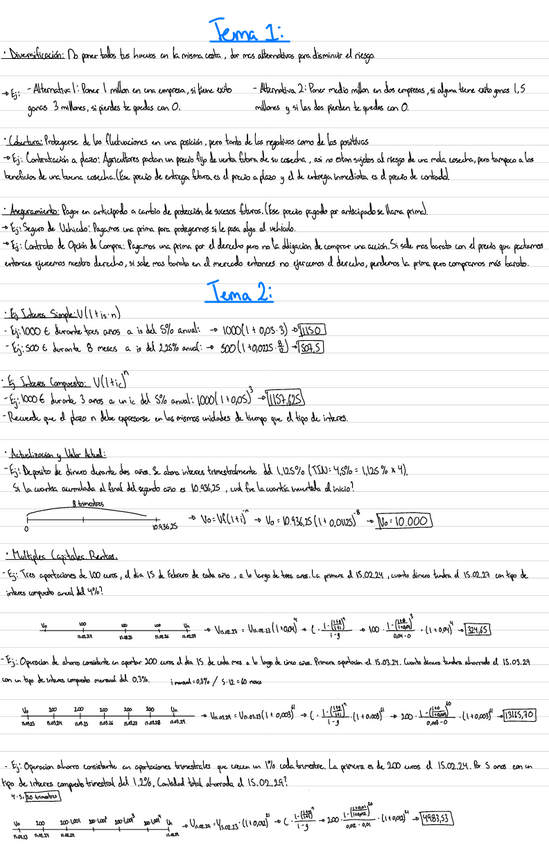 Tema 1:
· Diversificación: No poner todos tus huevos en la misma cesta, dar mas alternativas para disminuir el riesgo.
→ Ej: - Alternativa 1: Poner 1 millon en una empresa, si tiene exito
ganas 3 millones, si pierdes te quedas con 0.
- Alternativa 2: Poner medio millon en dos empresas, si alguna tiene exito ganas 1,5
millones y si las dos pierden te quedas con 0.
· Cobertura: Protegerse de las fluctuaciones en una posición, pero tanto de las negativas como de las positivas
→ Ej: Contratación a plazo: Agricultores pactan un precio fijo de venta futura de su cosecha, asi no estan sujetos al riesgo de una mala cosecha, pero tampoco a los
beneficios de una buena cosecha. (Ese precio de entrega futura es el precio a plazo y el de entrega inmediata es el precio de contado).
· Aseguramiento: Pagar en anticipado a cambio de protección de sucesos futuros. (Ese precio pagado por anticipado se llama prima).
→ Ej: Seguro de Vehiculo: Pagamos una prima para protegernos si le pasa algo al vehiculo.
→ Ej: Contrato de Opción de Compra: Pagamos una prima por el derecho pero no la obligación de comprar una acción. Si sale mas barato con el precio que pactamos
entonces ejercemos nuestro derecho, si sale mas barato en el mercado entonces no ejercemos el derecho, perdemos la prima pero compramos más barato.
Tema 2:
· Ej Interes Simple: V(1+is·n)
- Ej: 1000 € durante tres anos a is del 5% anual: → 1000(1+0,05·3) → 1150
- Ej: 500 € durante 8 meses a is del 2,25% anual: → 500(1+0,0225·8/12) → 507,5
· Ej Interes Compuesto: V(1+ic)^n
- Ej: 1000 € durante 3 anos a un ic del 5% anual: 1000(1+0,05)^3 → 1157,625
- Recuerde que el plazo n debe expresarse en las mismas unidades de tiempo que el tipo de interes.
· Actualización y Valor Actual:
- Ej: Deposito de dinero durante dos años. Se abona interes trimestralmente del 1,125% (TIN=4,5% = 1,125% x 4).
Si la cuantia acumulada al final del segundo año es 10.936,25, cual fue la cuantia invertida al inicio?
8 trimestres
0 10.936,25 → Vo = Vf(1+i)^-n → Vo = 10.936,25(1+0,01125)^-8 → Vo = 10.000
· Multiples Capitales. Rentas.
- Ej: Tres aportaciones de 100 euros, el dia 15 de Febrero de cada año, a lo largo de tres anos. La primera el 15.02.24, cuanto dinero tendra el 15.02.27 con tipo de
interes compuesto anual del 4%?
- Ej: Operacion de ahorro consistente en aportar 200 euros el dia 15 de cada mes a lo largo de cinco años. Primera aportación el 15.03.24. Cuanto dinero tendra ahorrado el 15.03.29
con un tipo de interes compuesto mensual del 0,3%. i mensual = 0,3% / 5·12 = 60 meses
- Ej: Operacion ahorro consistente en aportaciones trimestrales que crecen un 1% cada trimestre. La primera es de 200 euros el 15.02.24. Por 5 anos con un
tipo de interes compuesto trimestral del 1,2%, Cantidad total ahorrada el 15.02.29?
4·5: 20 trimestres